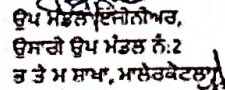 ਉਪ ਮੰਡਲ ਇੰਜੀਨੀਅਰ,
ਉਸਾਰੀ ਉਪ ਮੰਡਲ ਨੰ:2
ਭ ਤੇ ਮ ਸ਼ਾਖਾ, ਮਾਲੇਰਕੋਟਲਾ